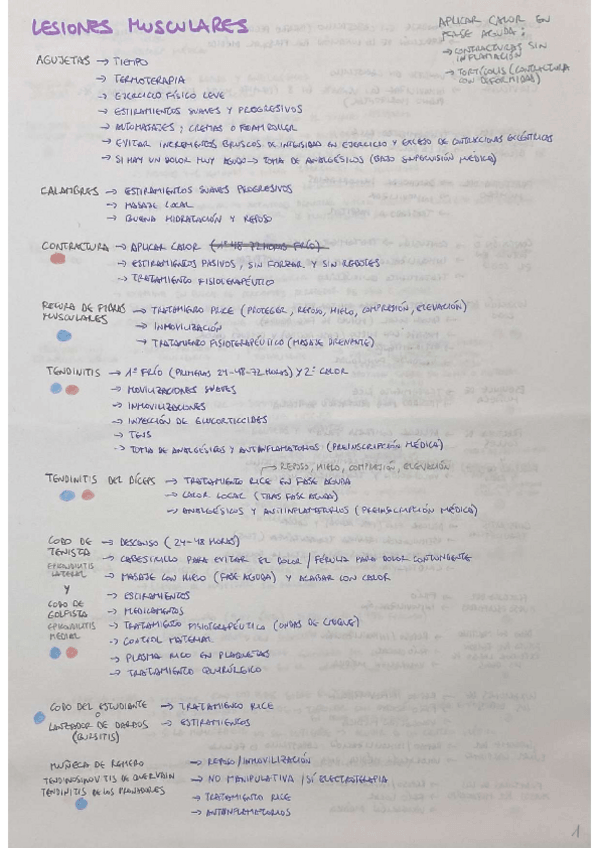 LESIONES MUSCULARES
APLICAR CALOR EN
FASE AGUDA:
→ CONTRACTURAS SIN
INFLAMACIÓN
→ TORTÍCOLIS (CONTRACTURA
CON DEFORMIDAD)
AGUJETAS → TIEMPO
→ TERMOTERAPIA
→ EJERCICIO FÍSICO LEVE
→ ESTIRAMIENTOS SUAVES Y PROGRESIVOS
→ AUTOMASAJES; CREMAS O FOAM ROLLER
→ EVITAR INCREMENTOS BRUSCOS DE INTENSIDAD EN EJERCICIO Y EXCESO DE CONTRACCIONES EXCÉNTRICAS
→ SI HAY UN DOLOR MUY AGUDO → TOMA DE ANALGÉSICOS (BAJO SUPERVISIÓN MÉDICA)
CALAMBRES → ESTIRAMIENTOS SUAVES PROGRESIVOS
→ MASAJE LOCAL
→ BUENA HIDRATACIÓN Y REPOSO
CONTRACTURA → APLICAR CALOR (1º 48-72 HORAS FRÍO)
→ ESTIRAMIENTOS PASIVOS, SIN FORZAR Y SIN REBOTES
→ TRATAMIENTO FISIOTERAPÉUTICO
ROTURA DE FIBRAS → TRATAMIENTO PRICE (PROTEGER, REPOSO, HIELO, COMPRESIÓN, ELEVACIÓN)
MUSCULARES → INMOVILIZACIÓN
→ TRATAMIENTO FISIOTERAPÉUTICO (MASAJE DRENANTE)
TENDINITIS → 1º FRÍO (PRIMEROS 24-48-72 HORAS) Y 2º CALOR
→ MOVILIZACIONES SUAVES
→ INMOVILIZACIONES
→ INYECCIÓN DE GLUCORTICIDES
→ TENS
→ TOMA DE ANALGÉSICOS Y ANTIINFLAMATORIOS (PREINSCRIPCIÓN MÉDICA)
→ REPOSO, HIELO, COMPRESIÓN, ELEVACIÓN
TENDINITIS DEL BÍCEPS → TRATAMIENTO RICE EN FASE AGUDA
→ CALOR LOCAL (TRAS FASE AGUDA)
→ ANALGÉSICOS Y ANTIINFLAMATORIOS (PREINSCRIPCIÓN MÉDICA)
CODO DE → DESCANSO (24-48 HORAS)
TENISTA → CABESTRILLO PARA EVITAR EL DOLOR / FÉRULA PARA DOLOR CONTUNDENTE
EPICONDILITIS
LATERAL → MASAJE CON HIELO (FASE AGUDA) Y ACABAR CON CALOR
Y → ESTIRAMIENTOS
CODO DE → MEDICAMENTOS
GOLFISTA → TRATAMIENTO FISIOTERAPÉUTICO (ONDAS DE CHOQUE)
EPICONDILITIS
MEDIAL → CONTROL MATERIAL
→ PLASMA RICO EN PLAQUETAS
→ TRATAMIENTO QUIRÚRGICO
CODO DEL ESTUDIANTE → TRATAMIENTO RICE
O
LANZADOR DE DARDOS → ESTIRAMIENTOS
(BURSITIS)
MUÑECA DE REMERO → REPOSO/INMOVILIZACIÓN
TENDINOSINOVITIS DE QUERVAIN → NO MANIPULATIVA / SÍ ELECTROTERAPIA
TENDINITIS DE LOS PRONADORES → TRATAMIENTO RICE
→ ANTIINFLAMATORIOS
1